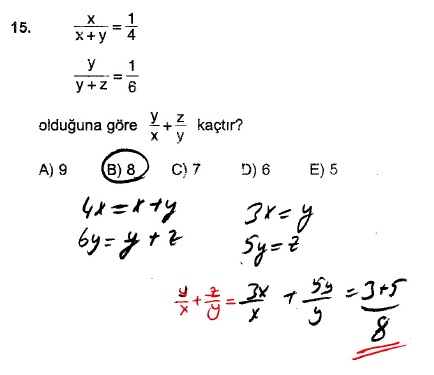 15. x/(x+y) = 1/4
y/(y+z) = 1/6
olduğuna göre y/x + z/y kaçtır?
A) 9 B) 8 C) 7 D) 6 E) 5
4x = x+y 3x = y
6y = y+z 5y = z
y/x + z/y = 3x/x + 5y/y = 3+5
8